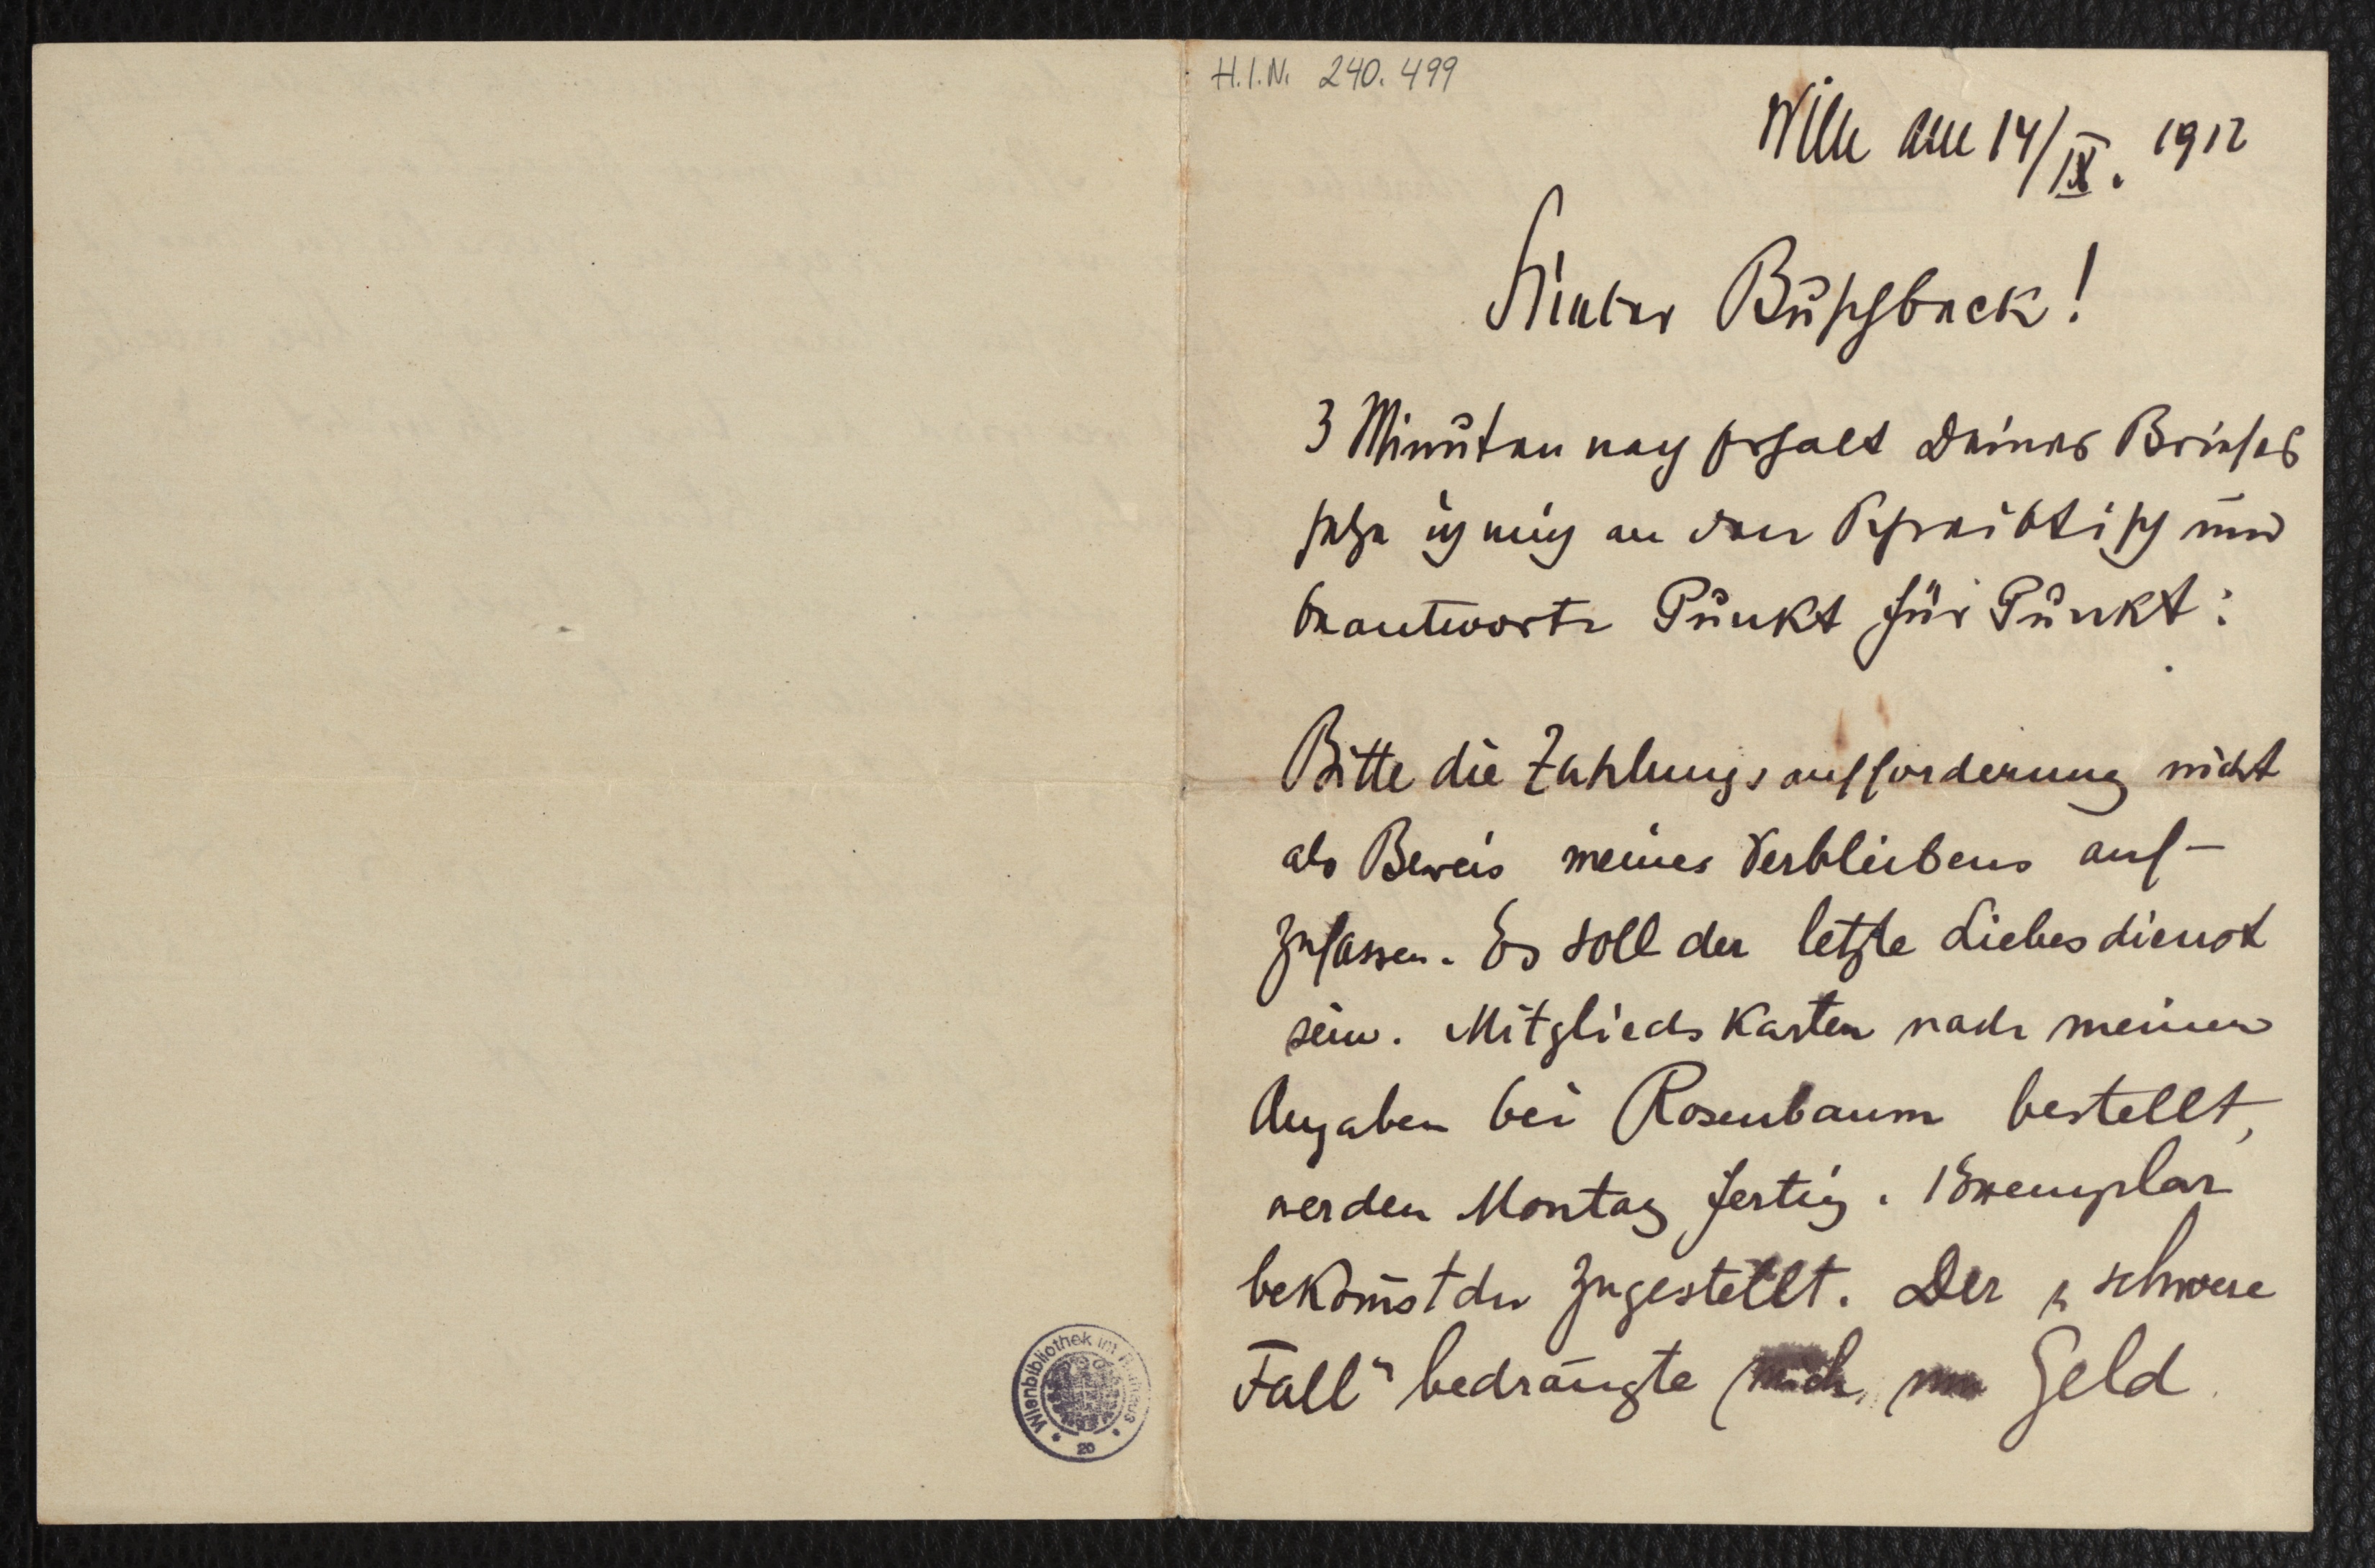 H.I.N. 240.499
Wien am 14/IX. 1912
Lieber Buschbeck!
3 Minuten nach Erhalt Deines Briefes
setze ich mich an den Schreibtisch und
beantworte Punkt für Punkt:
Bitte die Zahlungsaufforderung nicht
als Beweis meines Verbleibens auf-
zufassen. Es soll der letzte Liebesdienst
sein. Mitgliedskarten nach meinen
Angaben bei Rosenbaum bestellt,
werden Montag fertig. 1 Exemplar
bekom̅st du zugestellt. Der „schwere
Fall“ bedrängte mich, um Geld
Wienbibliothek im Rathaus
20